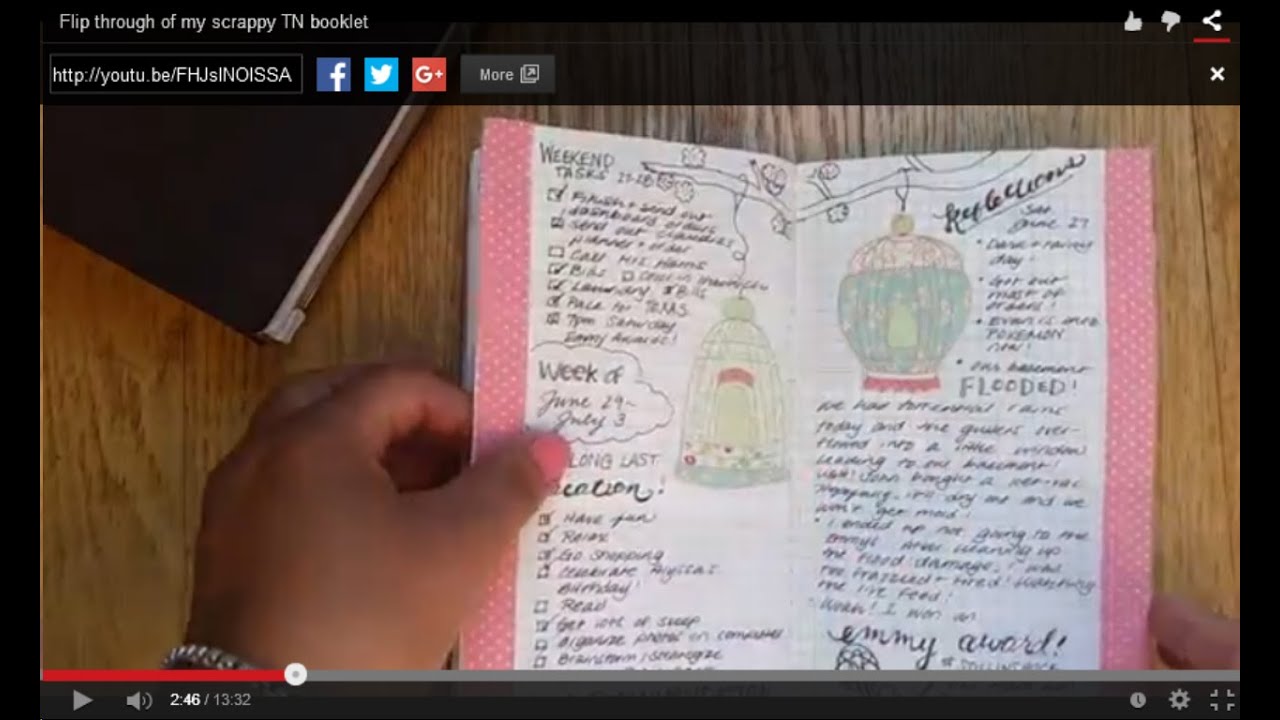 Flip through of my scrappy TN booklet
http://youtu.be/FHJslNOISSA
More
WEEKEND
TASKS 27-28
Finish + send out
dashboard orders
Send out
planner + order
Call Mrs. Harris
Bills
Laundry Bills
Pack for TEXAS
7pm Saturday
Emmy Awards!
Week of
June 29-
July 3
LONG LAST
Have fun
Relax
Go shopping
Celebrate Alyssa's
Birthday!
Read
Get lots of sleep
Organize photos on computer
Brainstorm/strategize
Reflections
Sat
June 27
• Dark + rainy
day!
• Got out
most of
orders!
• Evan is into
POKEMON
now!
• Our basement
FLOODED!
We had torrential rains
today and the gutters over-
flowed into a little window
leading to our basement!
Ugh! John bought a wet-vac
Hopefully it'll dry out and we
won't get mold!
• I ended up not going to the
Emmys. After cleaning up
the flood damage, I was
too frazzled + tired! Watching
the live feed!
• Woah! I won an
emmy award!
2:46 / 13:32